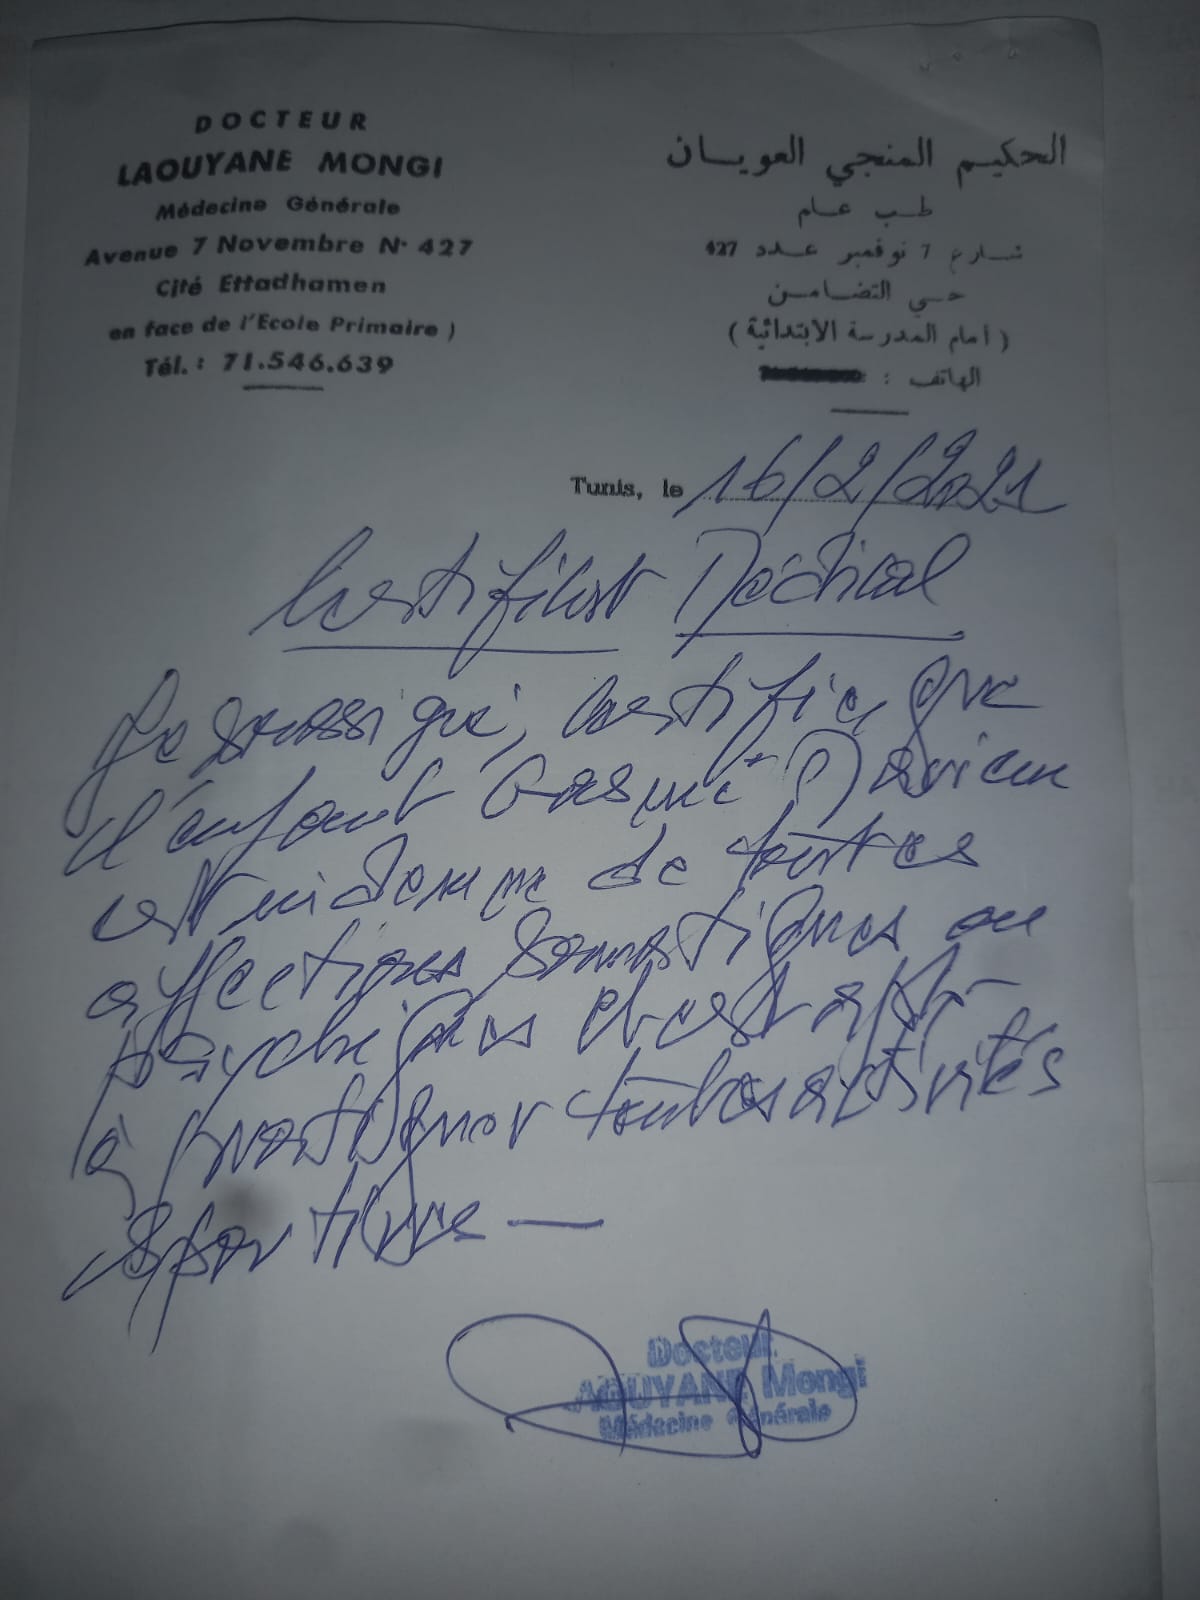 DOCTEUR
LAOUYANE MONGI
Médecine Générale
Avenue 7 Novembre N· 427
Cité Ettadhamen
en face de l'Ecole Primaire )
Tél. : 71.546.639
الحكيم المنجي العويان
طب عام
شارع 7 نوفمبر عدد 427
حي التضامن
( أمام المدرسة الابتدائية )
الهاتف :
Tunis, le 16/2/2021
Certificat Médical
Je soussigné, certifie que
l'enfant Mariem
est indemne de toutes
affections somatiques ou
psychiques et est apte
à pratiquer toutes activités
sportives
Docteur
AOUYANE Mongi
Médecine Générale